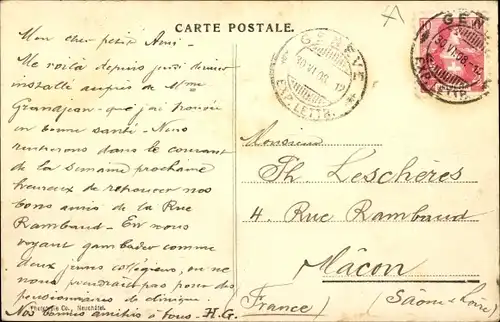 CARTE POSTALE.
Mon cher petit Ami.
Me voilà depuis jeudi dernier
installé auprès de Mme
Grandjean que j'ai trouvée
en bonne santé. Nous
rentrerons dans le courant
de la semaine prochaine
heureux de retrouver nos
bons amis de la Rue
Rambaud. En nous
voyant gambader comme
deux jeunes collégiens, on ne
nous prendrait pas pour des
pensionnaires de clinique.
Nos bonnes amitiés à tous. H.G.
Phototypie Co., Neuchâtel
GENÈVE
30 VI 08. 12
EXP. LETTR.
GEN
30 VI 08. 12
EXP. LETTR.
Monsieur
Th Leschères
4. Rue Rambaud
Mâcon
(Saône & Loire)
France